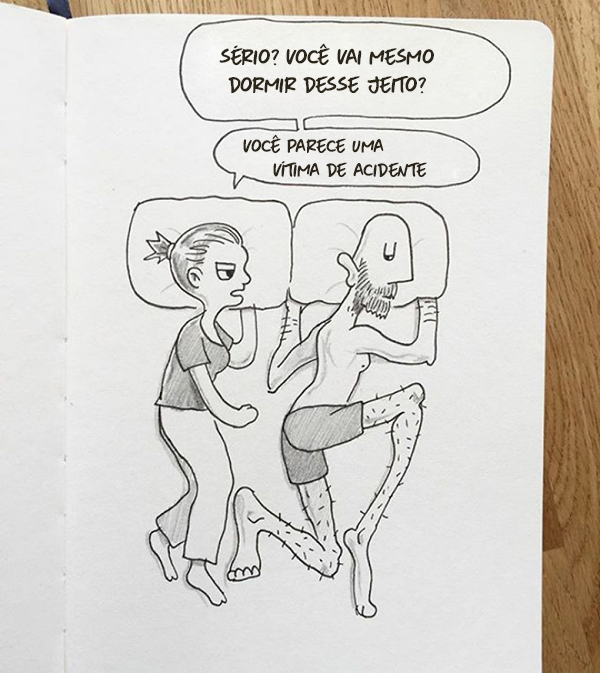 SÉRIO? VOCÊ VAI MESMO
DORMIR DESSE JEITO?
VOCÊ PARECE UMA
VÍTIMA DE ACIDENTE